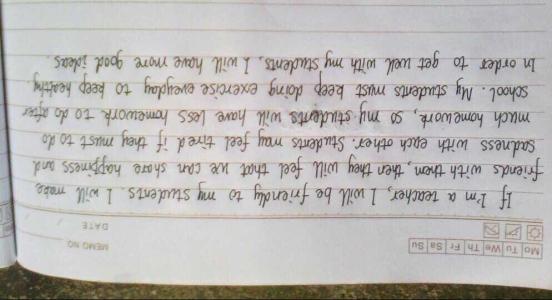 Mo Tu We Th Fr Sa Su
MEMO NO.
DATE
If I'm a teacher, I will be friendly to my students. I will make
friends with them, then they will feel that we can share happiness and
sadness with each other. Students may feel tired if they must to do
much homework, so my students will have less homework to do after
school. My students must keep doing exercise everyday to keep healthy
In order to get well with my students, I will have more good ideas.